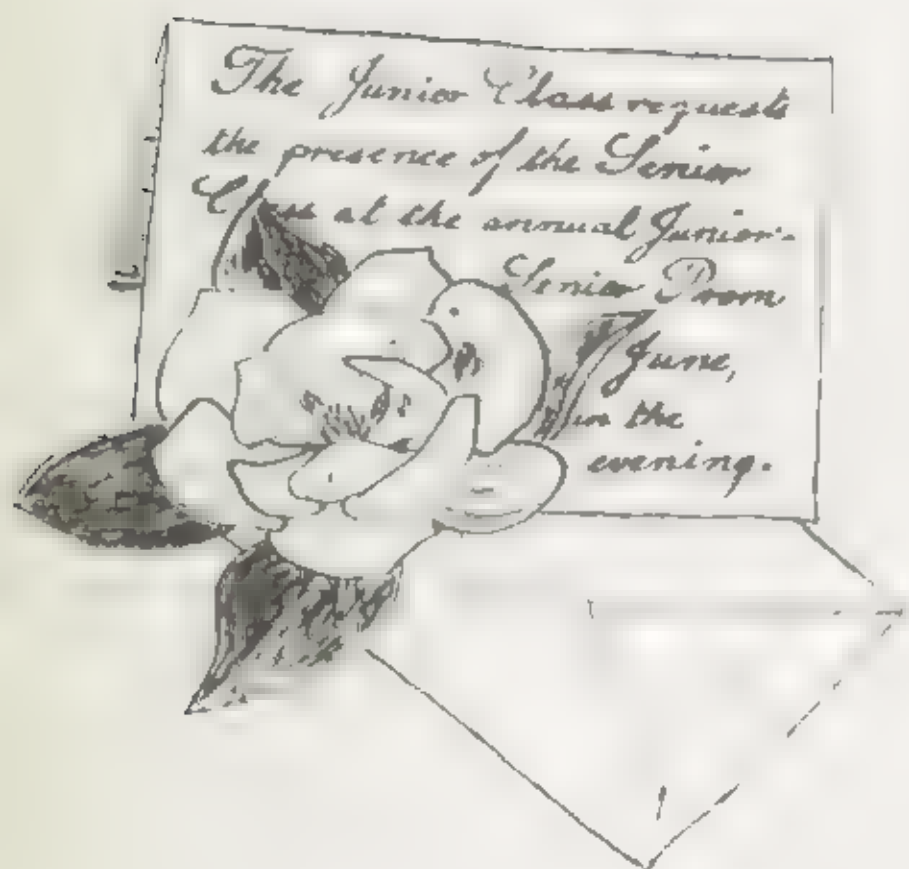 The Junior Class requests
the presence of the Senior
Class at the annual Junior-
Senior Prom
June,
in the
evening.